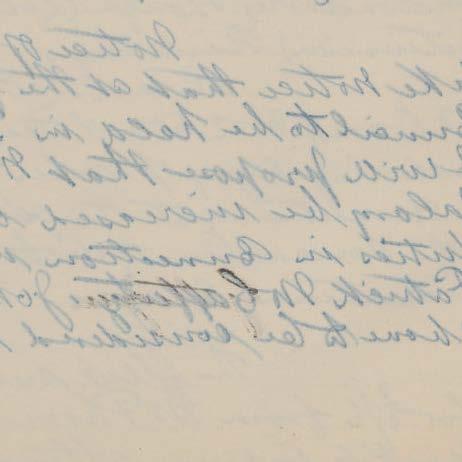 Notice of
ke notice that at the
uncil to be held in
will propose that
alary be increased
duties in connection
Patrick McCafferty Jo
have to be considered